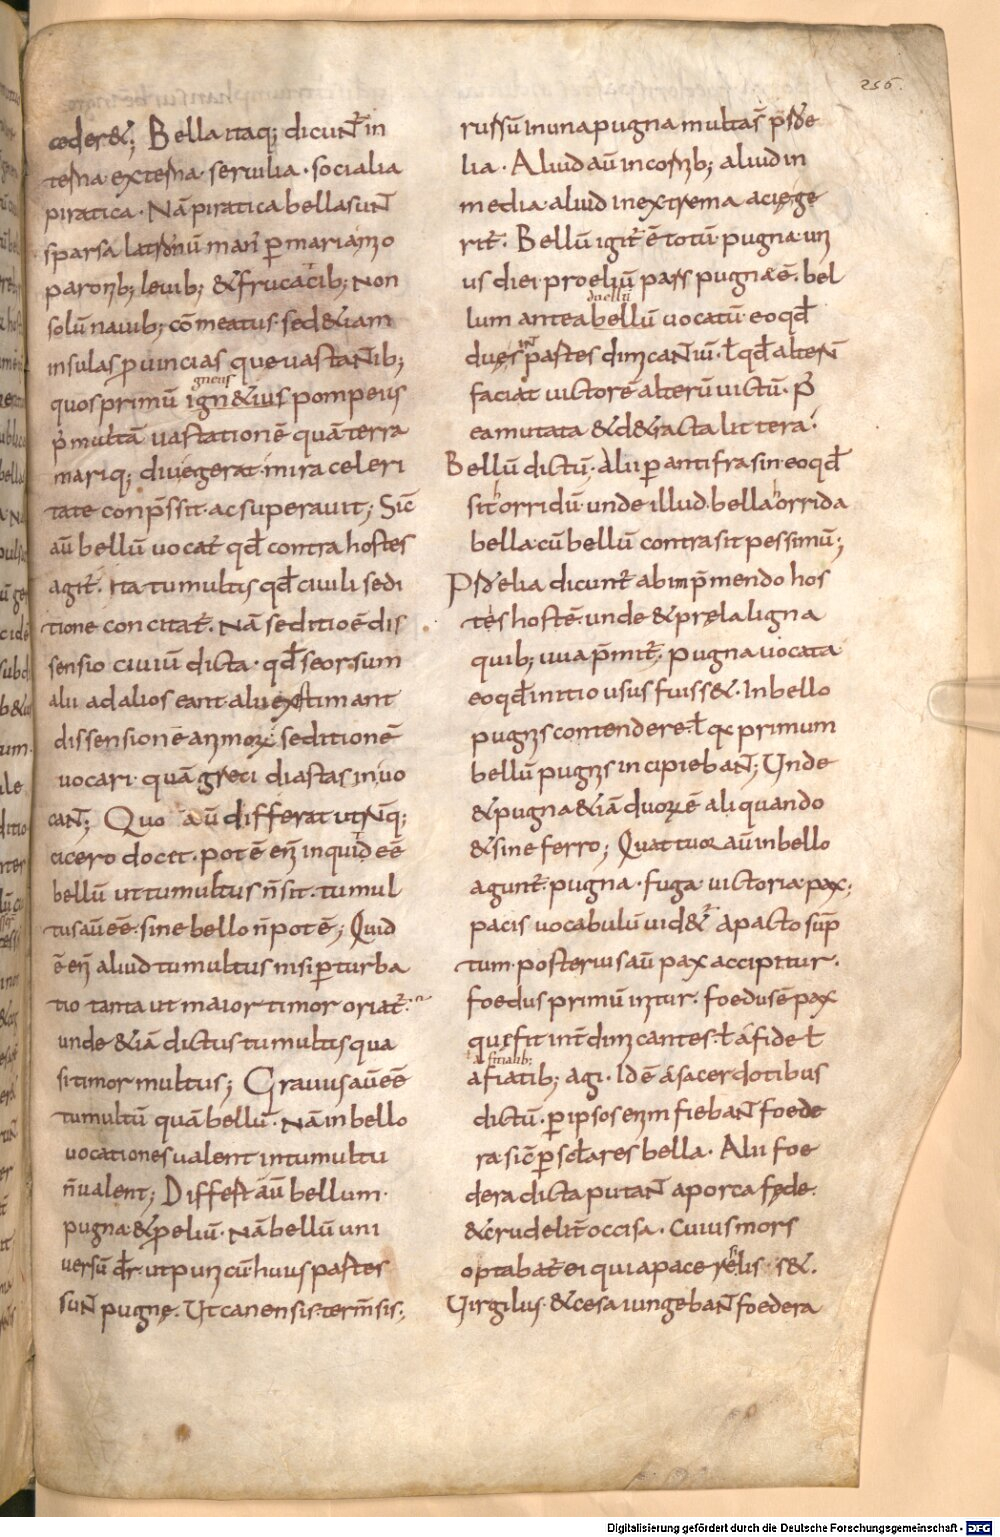 256.
ceder&; Bella itaq; dicunt̄ in
terna· externa· seruilia· socialia
piratica· Nā piratica bella sunt
sparsa latronū mari p̄ mari anzo
paronib; leuib; & frucacib; Non
solū nauib; cōmeatus· sed &iam
insulas puincias que uastantib;
gneus
quos primū ign&ius pompeius
p̄ multā uastationē quā terra
mariq; diu egerat· mira celeri
tate conp̄ssit· ac superauit; Sic̄
aū bellū uocat̄ qđ contra hostes
agit̄. Ita tumultus qđ ciuili sedi
tione concitat̄. Nā seditio ē dis
sensio ciuiū dicta· qđ seorsum
alii ad alios eant· alii existimant
dissensionē animorꝝ seditionē
uocari quā greci diastas in uo
cant; Quo aū differat utrūq;
cicero docet· pot ē eni inquid eē
bellū ut tumultus n̄ sit· tumul
tus aū eē· sine bello n̄ pot ē; Quid
ē eni aliud tumultus nisi p̄turba
tio tanta ut maior timor oriat̄·
unde &iā dictus tumultus qua
si timor multus; Grauius aū eē
tumultū quā bellū· Nā in bello
uocationes ualent in tumultu
n̄ ualent; Differt aū bellum·
pugna· & p̄eliū· Nā bellū uni
uersū dr̄· ut punicū huius partes
sunt pugnę. Ut canensis· term̄sis;
rursū in una pugna multa s̄ p̄de
lia· Aliud aū in cornib; aliud in
media· aliud in extrema acie ge
rit̄· Bellū igit̄ ē totū pugna· un
us diei· proeliū pars pugnæ ē· bel
duellū
lum antea bellū uocatū eo qđ
in
dues partes dimicantiū· ł qđ alterū
faciat uictorē alterū uictū· P̄
ea mutata & d&racta littera·
Bellū dictū· Alii p̄ antifrasin eo qđ
h h
sit orridū· unde illud bella orrida
bella· cū bellū contra sit pessimū;
Prdelia dicunt̄ ab inp̄mendo hos
tes hostē· unde & pręla ligna
quib; uua p̄mit̄. Pugna uocata
eo qđ initio usus fuiss&· In bello
pugnis contendere· ł qa primum
bellū pugnis incipiebant; Unde
& pugna &iā duorꝝ ē aliquando
& sine ferro; Quattuor aū in bello
agunt̄· pugna· fuga· uictoria· pax;
pacis uocabulū uid&̄ a pacto sūp
tum· posterius aū pax accipitur·
foedus primū initur· foedus ē pax
quę fit int̄ dimicantes· ł á fide ł
ał fitialib;
a fiatib; agi· Id ē á sacerdotibus
dictū· p̄ ipsos enim fiebant foede
ra sic̄ p̄ sclares bella· Alii foe
dera dicta putant a porca fęde·
& crudelit̄ occisa· Cuius mors
optabat̄ ei qui a pace relis s&.
Uirgilius· & cesa iungebant foedera
Digitalisierung gefördert durch die Deutsche Forschungsgemeinschaft - DFG